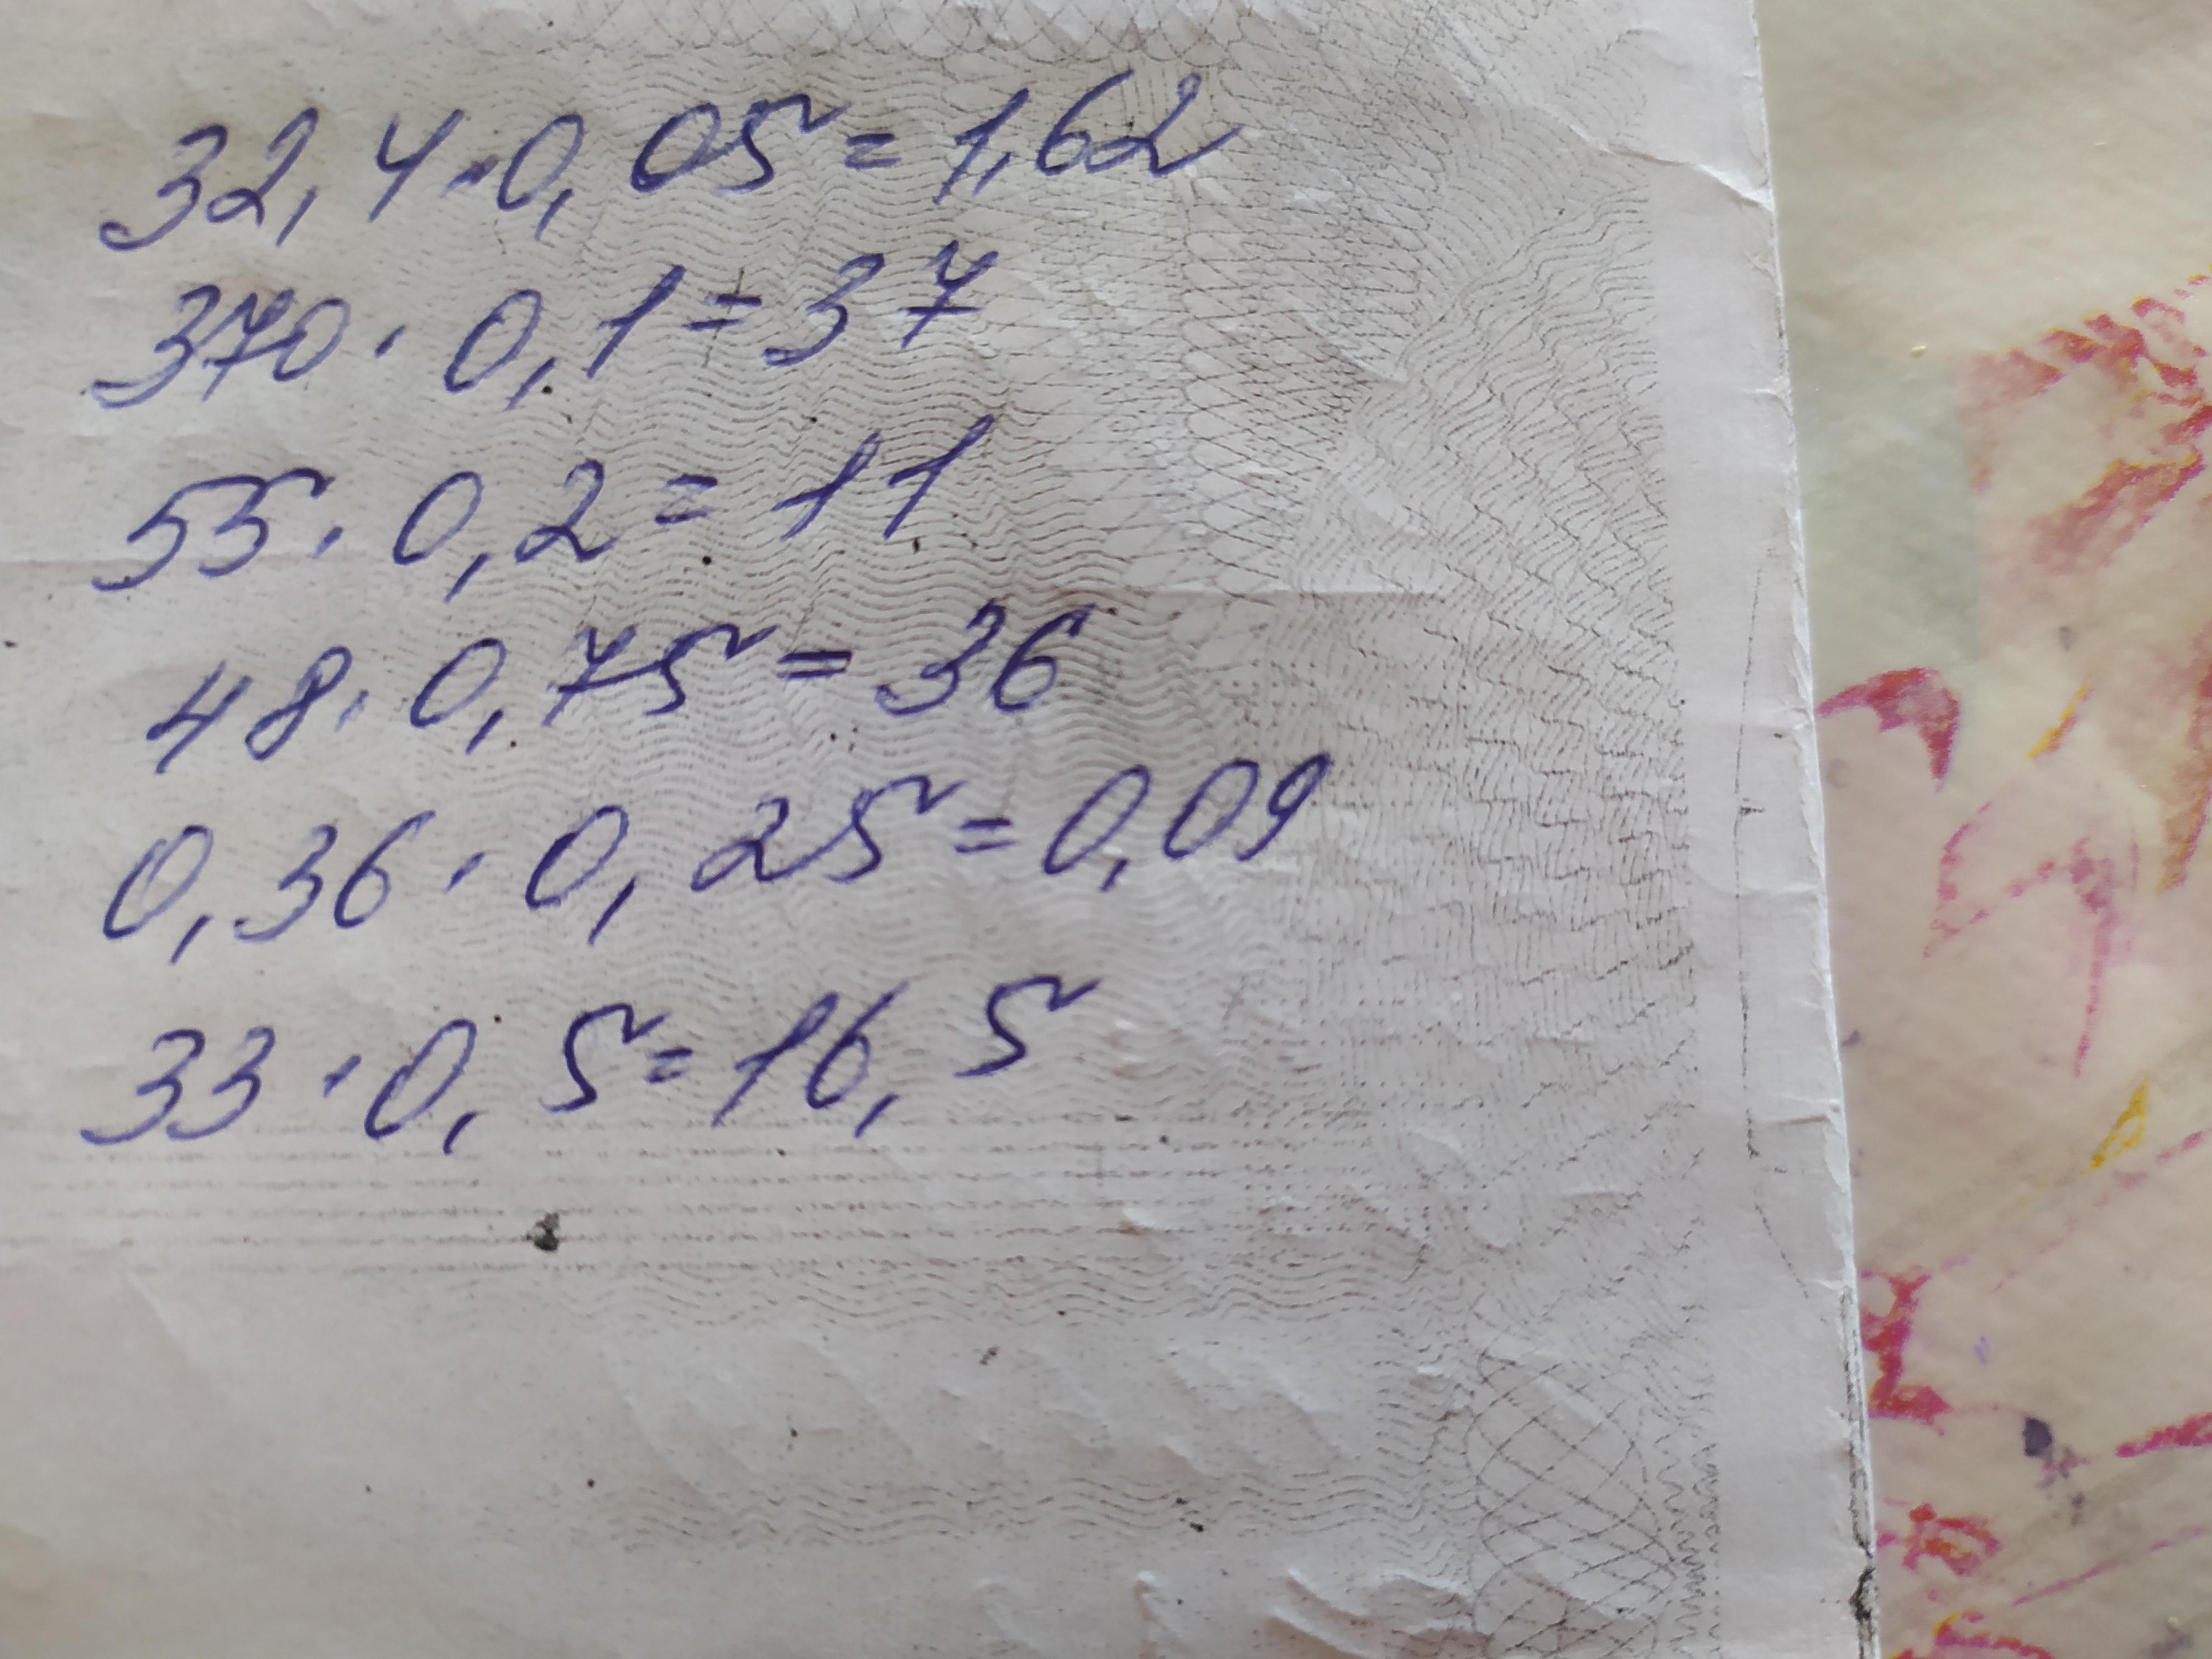 32,4·0,05=1,62
370·0,1=37
55·0,2=11
48·0,75=36
0,36·0,25=0,09
33·0,5=16,5